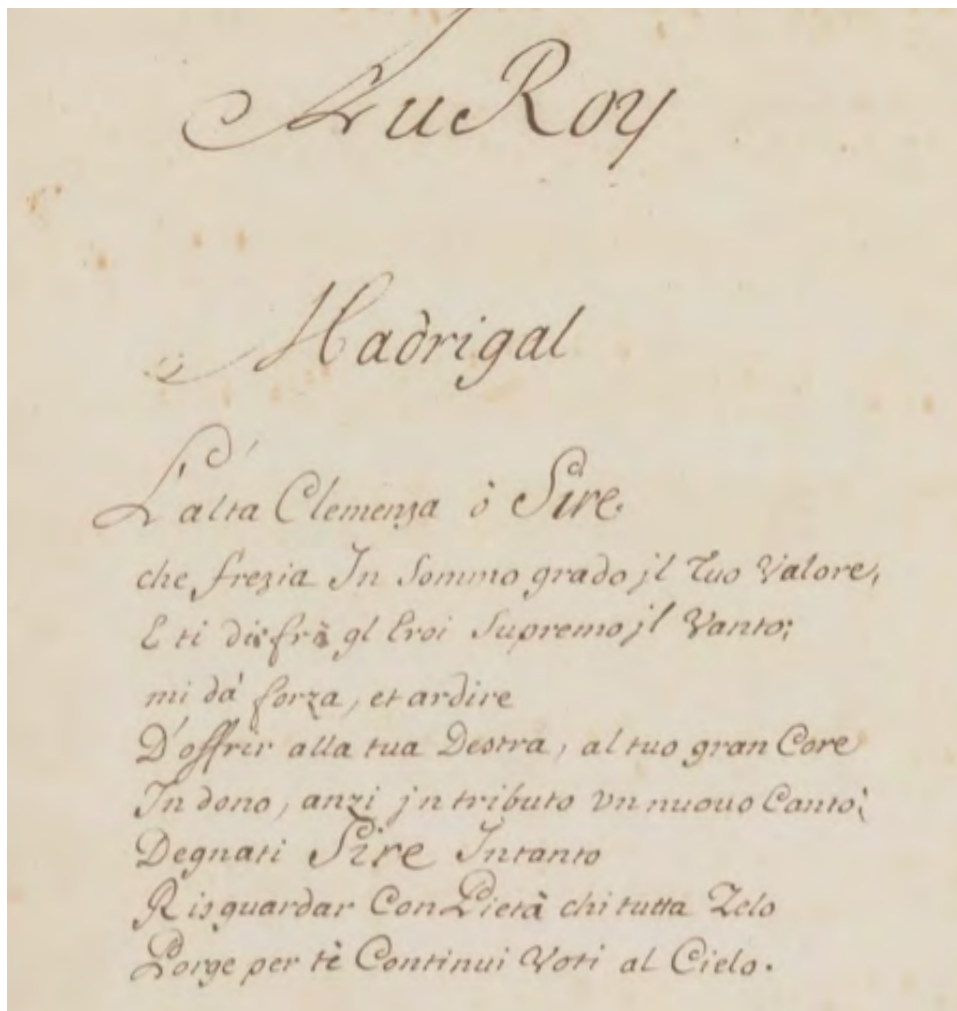 Au Roy
Madrigal
L'alta Clemenza ò Sire
che frezia In Sommo grado jl Tuo Valore,
E ti frà gl Eroi Supremo jl Vanto;
mi dà forza, et ardire
D'offrir alla tua Destra, al tuo gran Core
In dono, anzi jn tributo vn nuouo Canto;
Degnati Sire Intanto
Risguardar Con Pietà chi tutta Zelo
Porge per tè Continui Voti al Cielo.